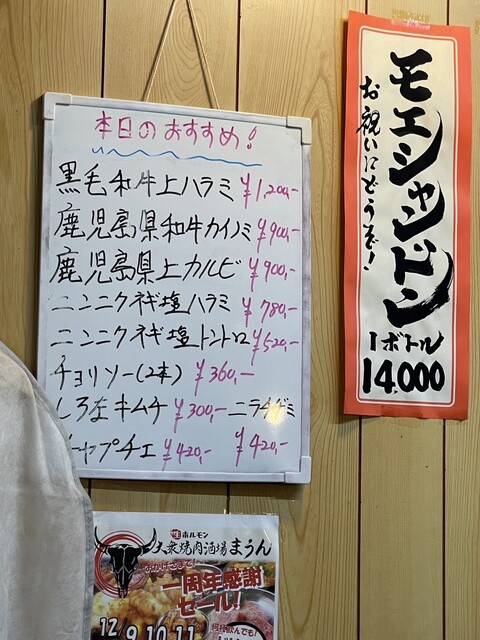 本日のおすすめ!
黒毛和牛上ハラミ ¥1,200,-
鹿児島県和牛カイノミ ¥900,-
鹿児島県上カルビ ¥900,-
ニンニクネギ塩ハラミ ¥780,-
ニンニクネギ塩トントロ ¥520,-
チョリソー(2本) ¥360,-
しろ菜キムチ ¥300,- ニラチヂミ
チャプチェ ¥420,- ¥420,-
モエシャンドン
お祝いにどうぞ!
1ボトル
14,000
生ホルモン
大衆焼肉酒場まうん
おかげさまで
一周年感謝
セール!
何杯飲んでも!
12 9.10.11